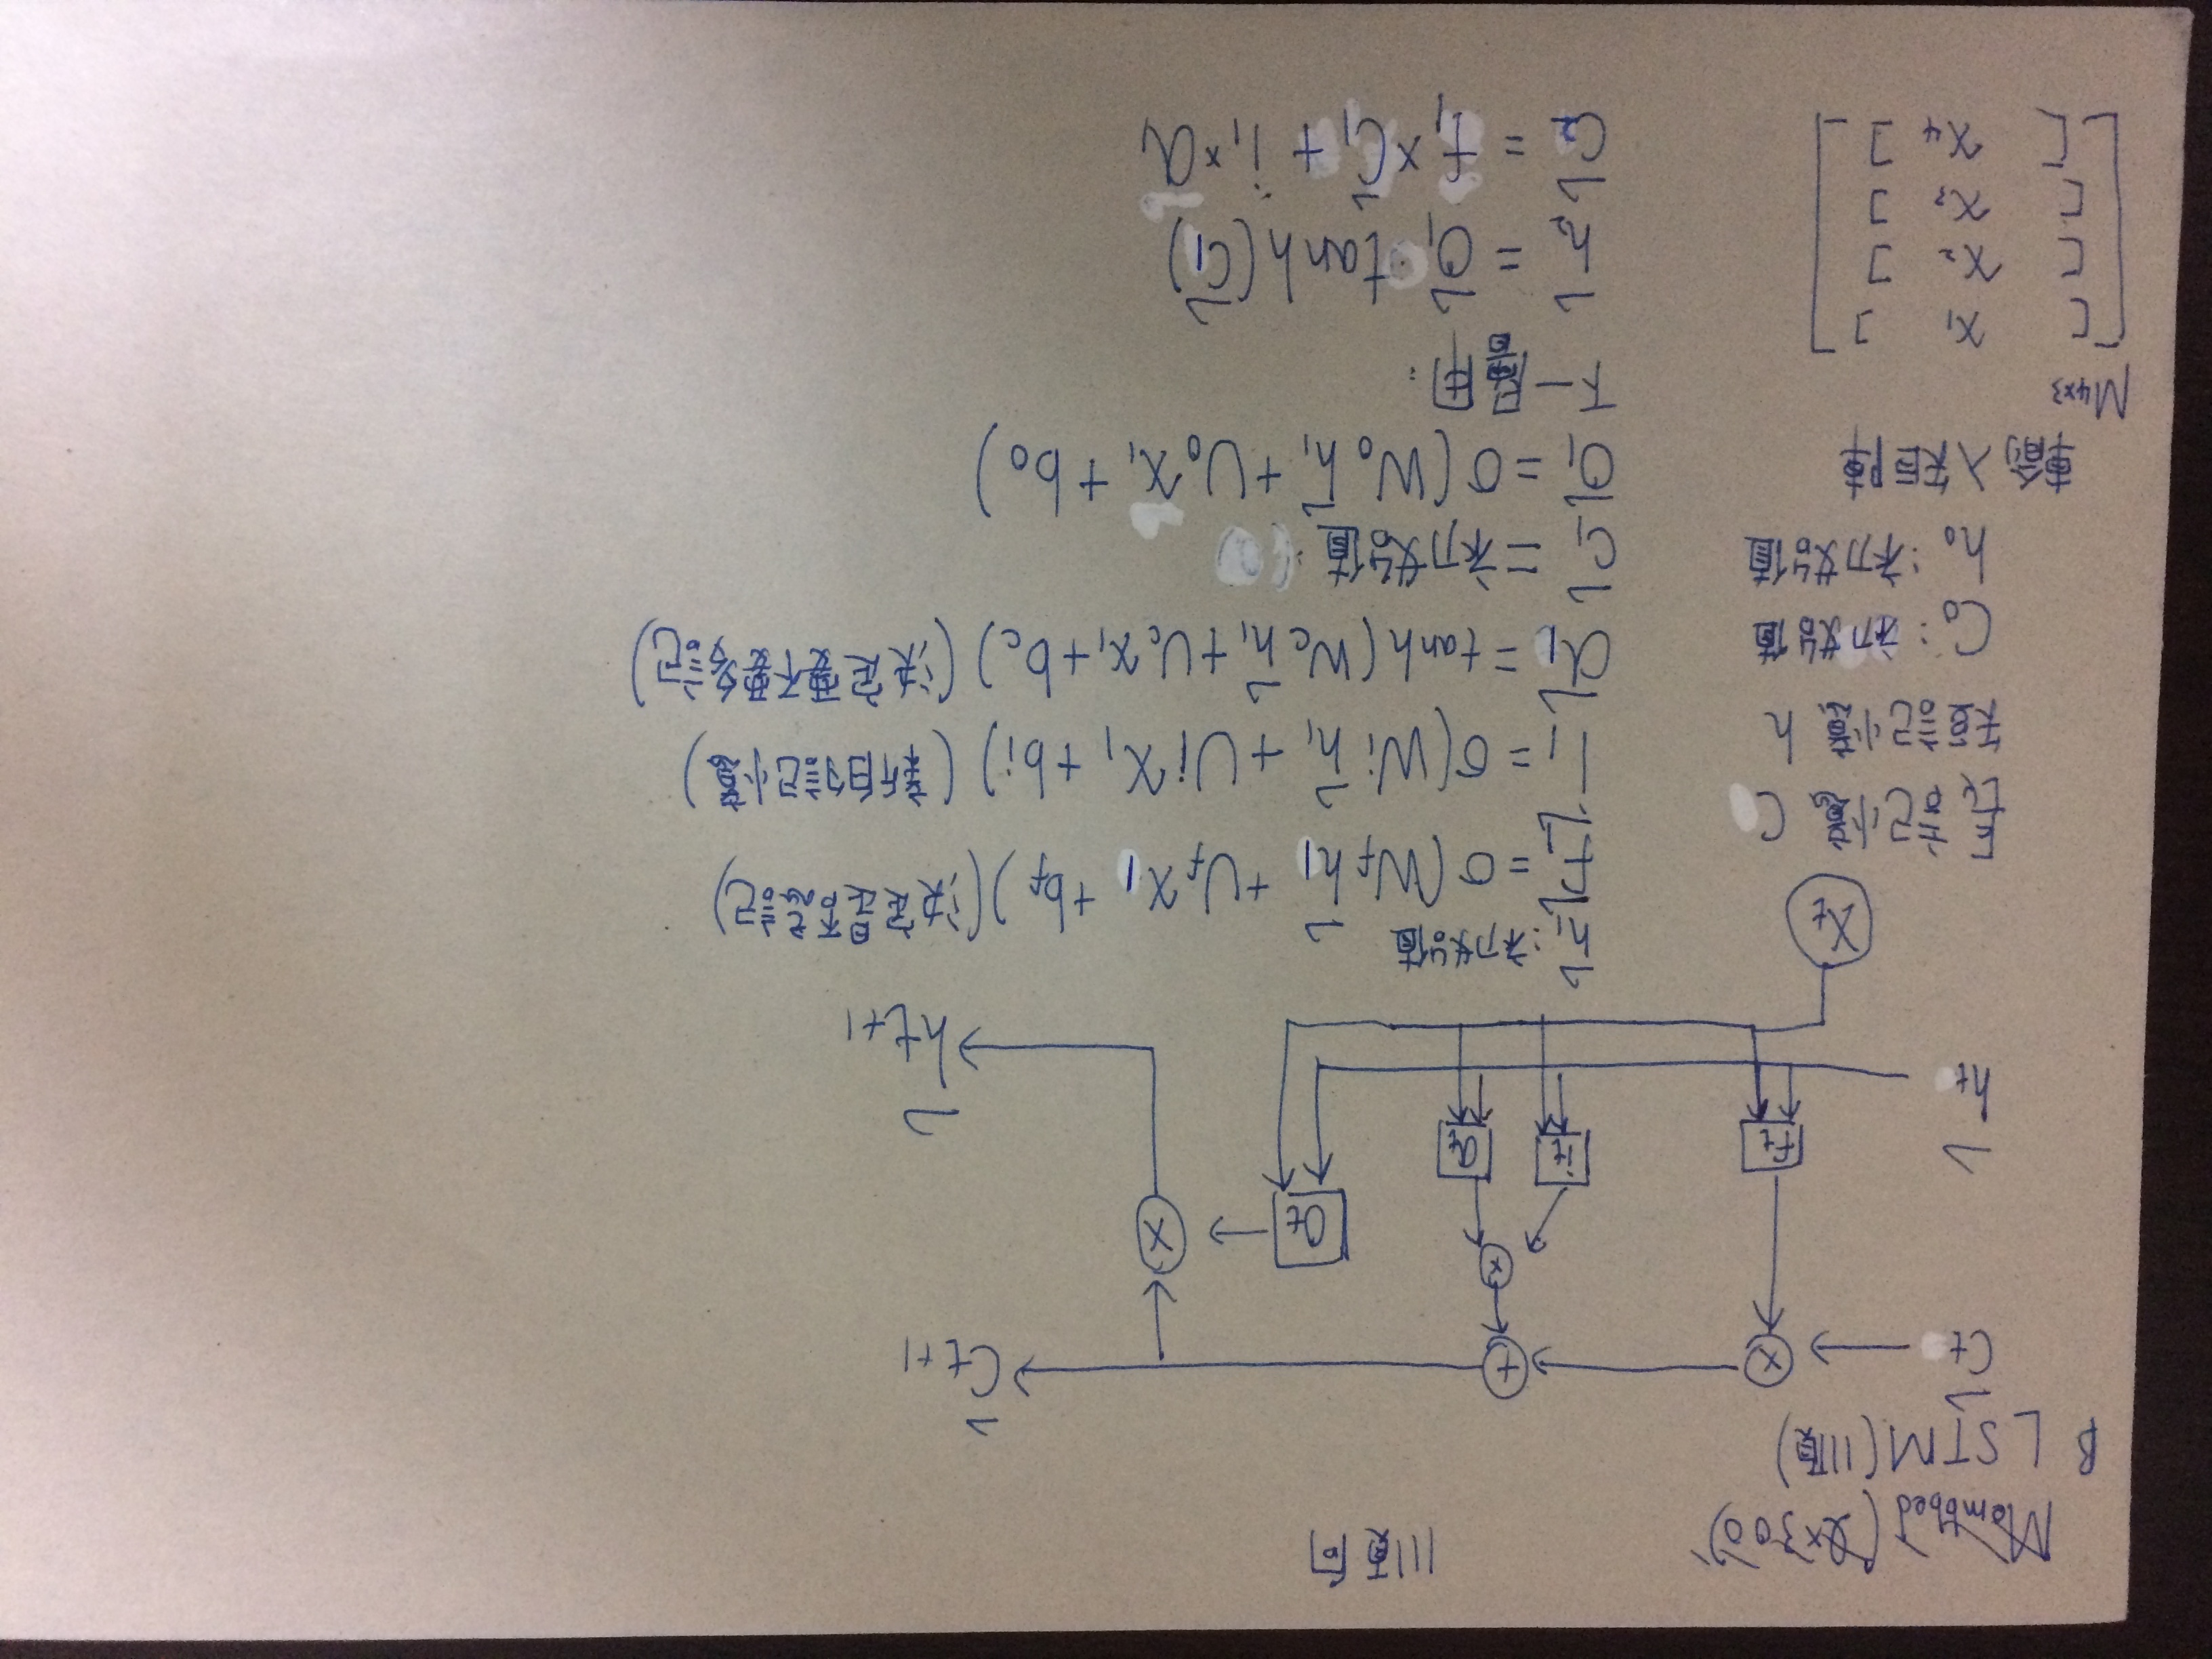 Membbed (l×300)
順向
B LSTM(順)
Ct
×
+
Ct+1
×
Ot
×
ft
it
at
ht
ht+1
Xt
長記憶 C
短記憶 h
C0:初始值
h0:初始值
輸入矩陣
M4×3
[[ x1 ]
[ x2 ]
[ x3 ]
[ x4 ]]
h1:初始值
f1 = σ(Wf h1 + Uf x1 + bf)(決定是否忘記)
i1 = σ(Wi h1 + Ui x1 + bi)(新的記憶)
a1 = tanh(Wc h1 + Uc x1 + bc)(決定要不要多記)
c1 = 初始值
o1 = σ(Wo h1 + Uo x1 + bo)
下一層用:
h2 = o1 · tanh(c1)
c2 = f1 × c1 + i1 × a1